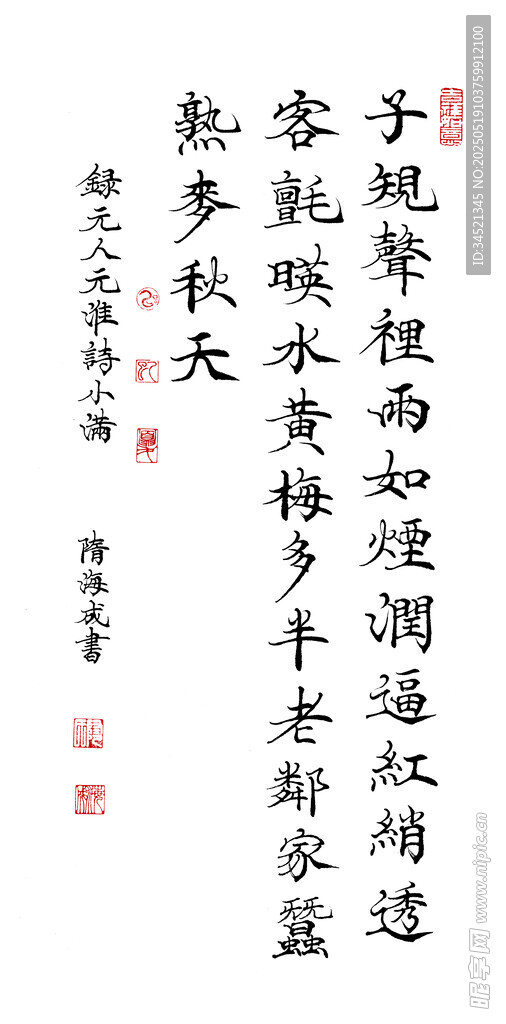 子規聲裡雨如煙潤逼紅綃透
客氈暎水黃梅多半老鄰家蠶
熟麥秋天
録元人元淮詩小滿
隋海成書
ID:34521345 NO:20250519103759912100
昵享网 www.nipic.cn